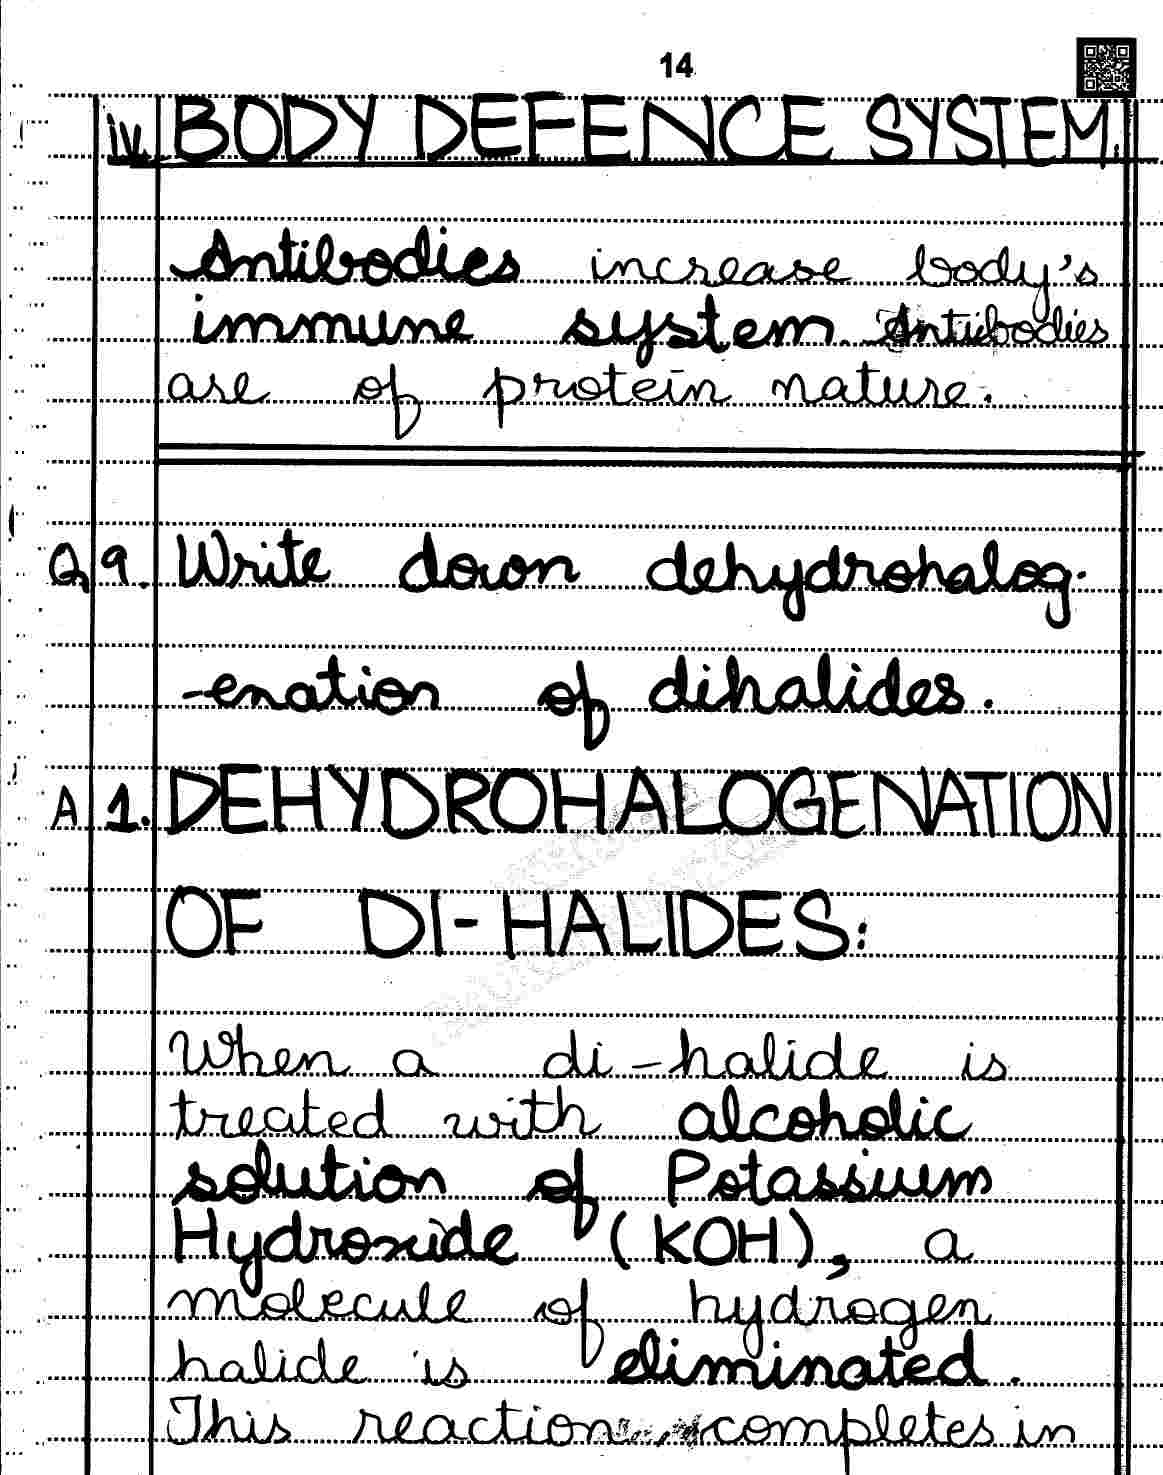 14
iv. BODY DEFENCE SYSTEM.
Antibodies increase body's
immune system. Antibodies
are of protein nature.
Q 9. Write down dehydrohalog-
-enation of dihalides.
A 1. DEHYDROHALOGENATION
OF DI-HALIDES:
When a di-halide is
treated with alcoholic
solution of Potassium
Hydroxide (KOH), a
molecule of hydrogen
halide is eliminated.
This reaction completes in